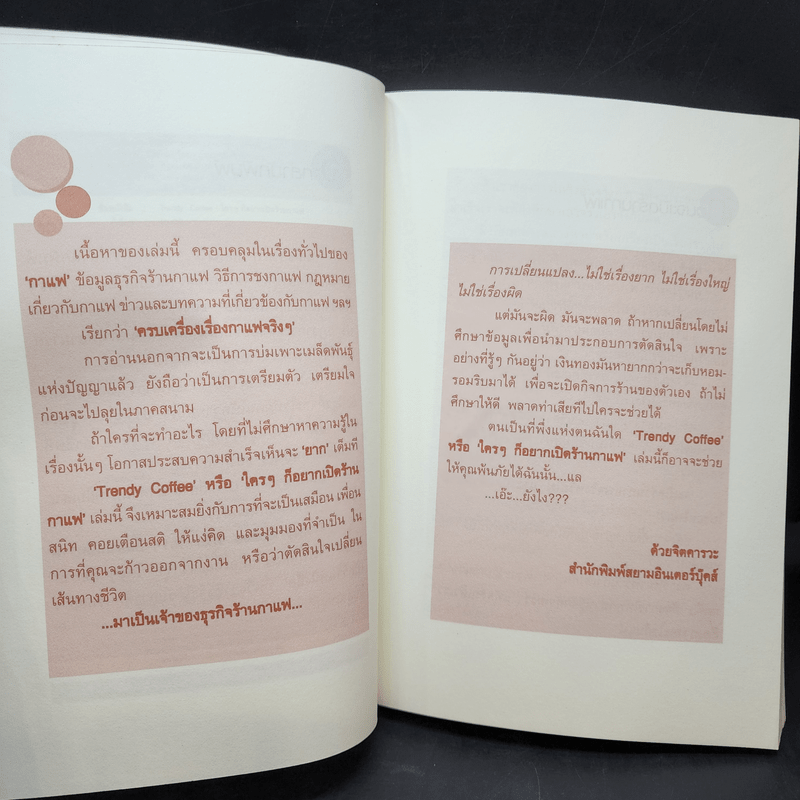 เนื้อหาของเล่มนี้ ครอบคลุมในเรื่องทั่วไปของ
'กาแฟ' ข้อมูลธุรกิจร้านกาแฟ วิธีการชงกาแฟ กฎหมาย
เกี่ยวกับกาแฟ ข่าวและบทความที่เกี่ยวข้องกับกาแฟ ฯลฯ
เรียกว่า 'ครบเครื่องเรื่องกาแฟจริงๆ'
การอ่านนอกจากจะเป็นการบ่มเพาะเมล็ดพันธุ์
แห่งปัญญาแล้ว ยังถือว่าเป็นการเตรียมตัว เตรียมใจ
ก่อนจะไปลุยในภาคสนาม
ถ้าใครที่จะทำอะไร โดยที่ไม่ศึกษาหาความรู้ใน
เรื่องนั้นๆ โอกาสประสบความสำเร็จเห็นจะ 'ยาก' เต็มที
'Trendy Coffee' หรือ 'ใครๆ ก็อยากเปิดร้าน
กาแฟ' เล่มนี้ จึงเหมาะสมยิ่งกับการที่จะเป็นเสมือน เพื่อน
สนิท คอยเตือนสติ ให้แง่คิด และมุมมองที่จำเป็น ใน
การที่คุณจะก้าวออกจากงาน หรือว่าตัดสินใจเปลี่ยน
เส้นทางชีวิต
...มาเป็นเจ้าของธุรกิจร้านกาแฟ...
การเปลี่ยนแปลง...ไม่ใช่เรื่องยาก ไม่ใช่เรื่องใหญ่
ไม่ใช่เรื่องผิด
แต่มันจะผิด มันจะพลาด ถ้าหากเปลี่ยนโดยไม่
ศึกษาข้อมูลเพื่อนำมาประกอบการตัดสินใจ เพราะ
อย่างที่รู้ๆ กันอยู่ว่า เงินทองมันหายากกว่าจะเก็บหอม-
รอมริบมาได้ เพื่อจะเปิดกิจการร้านของตัวเอง ถ้าไม่
ศึกษาให้ดี พลาดท่าเสียทีไปใครจะช่วยได้
ตนเป็นที่พึ่งแห่งตนฉันใด 'Trendy Coffee'
หรือ 'ใครๆ ก็อยากเปิดร้านกาแฟ' เล่มนี้ก็อาจจะช่วย
ให้คุณพ้นภัยได้ฉันนั้น...แล
...เอ๊ะ...ยังไง???
ด้วยจิตคารวะ
สำนักพิมพ์สยามอินเตอร์บุ๊คส์